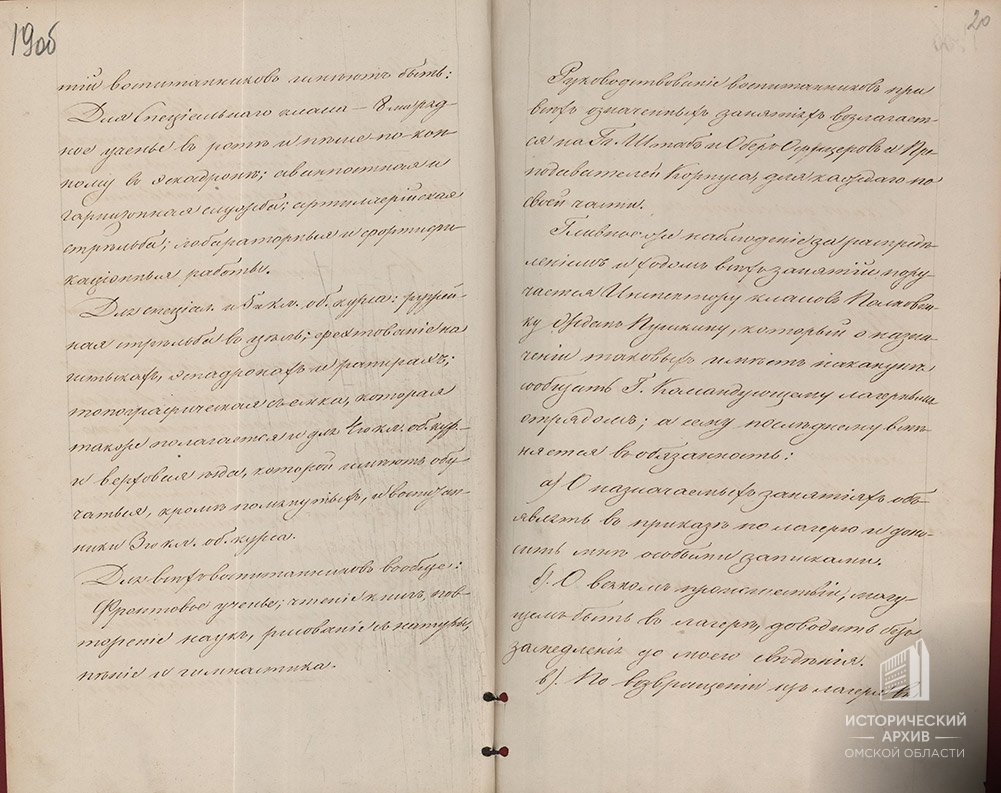 19об
тій воспитанниковъ имѣютъ быть:
Для Спеціальнаго класса – 8 ми ряд-
ное ученье въ ротѣ и пѣше-по-кон-
ному въ эскадронѣ; аванпостная и
гарнизонная служба; артиллерійская
стрѣльба; лабараторныя и фортифи-
каціонныя работы.
Для спеціал. и 5 и кл. об. курса: ружей-
ная стрѣльба въ цѣль; фехтованіе на
штыкахъ, эспадронахъ и рапирахъ;
топографическая съемка, которая
также полагается и для 4го кл. об. кур.
и верховая ѣзда, которой имѣютъ обу-
чаться, кромѣ помянутыхъ, и воспитан-
ники 3го кл. об. курса.
Для всѣхъ воспитанниковъ вообще:
Фронтовое ученье; чтеніе книгъ, пов-
тореніе наукъ, рисованіе съ натуры,
пѣніе и гимнастика.
20
Руководствованіе воспитанниковъ при
всѣхъ означенныхъ занятіяхъ возлагает-
ся на Гг. Штабъ и Оберъ Офицеровъ и Пре-
подавателей Корпуса, для каждаго по
своей части.
Главное же наблюденіе за распредѣ-
леніемъ и ходомъ всѣхъ занятій пору-
чается Инспектору классовъ Полковни-
ку Ждану Пушкину, который о назна-
ченіи таковыхъ имѣетъ наканунѣ
сообщать Г. Командующему лагернымъ
отрядомъ; а сему послѣднему вмѣ-
няется въ обязанность:
а) О назначаемыхъ занятіяхъ объ-
являть въ приказѣ по лагерю и доно-
сить мнѣ особыми записками.
б). О всякомъ происшествіи, могу-
щемъ быть въ лагерѣ, доводить безъ
замедленія до моего свѣдѣнія.
в). По возвращеніи изъ лагеря въ
ИСТОРИЧЕСКИЙ
АРХИВ
ОМСКОЙ ОБЛАСТИ